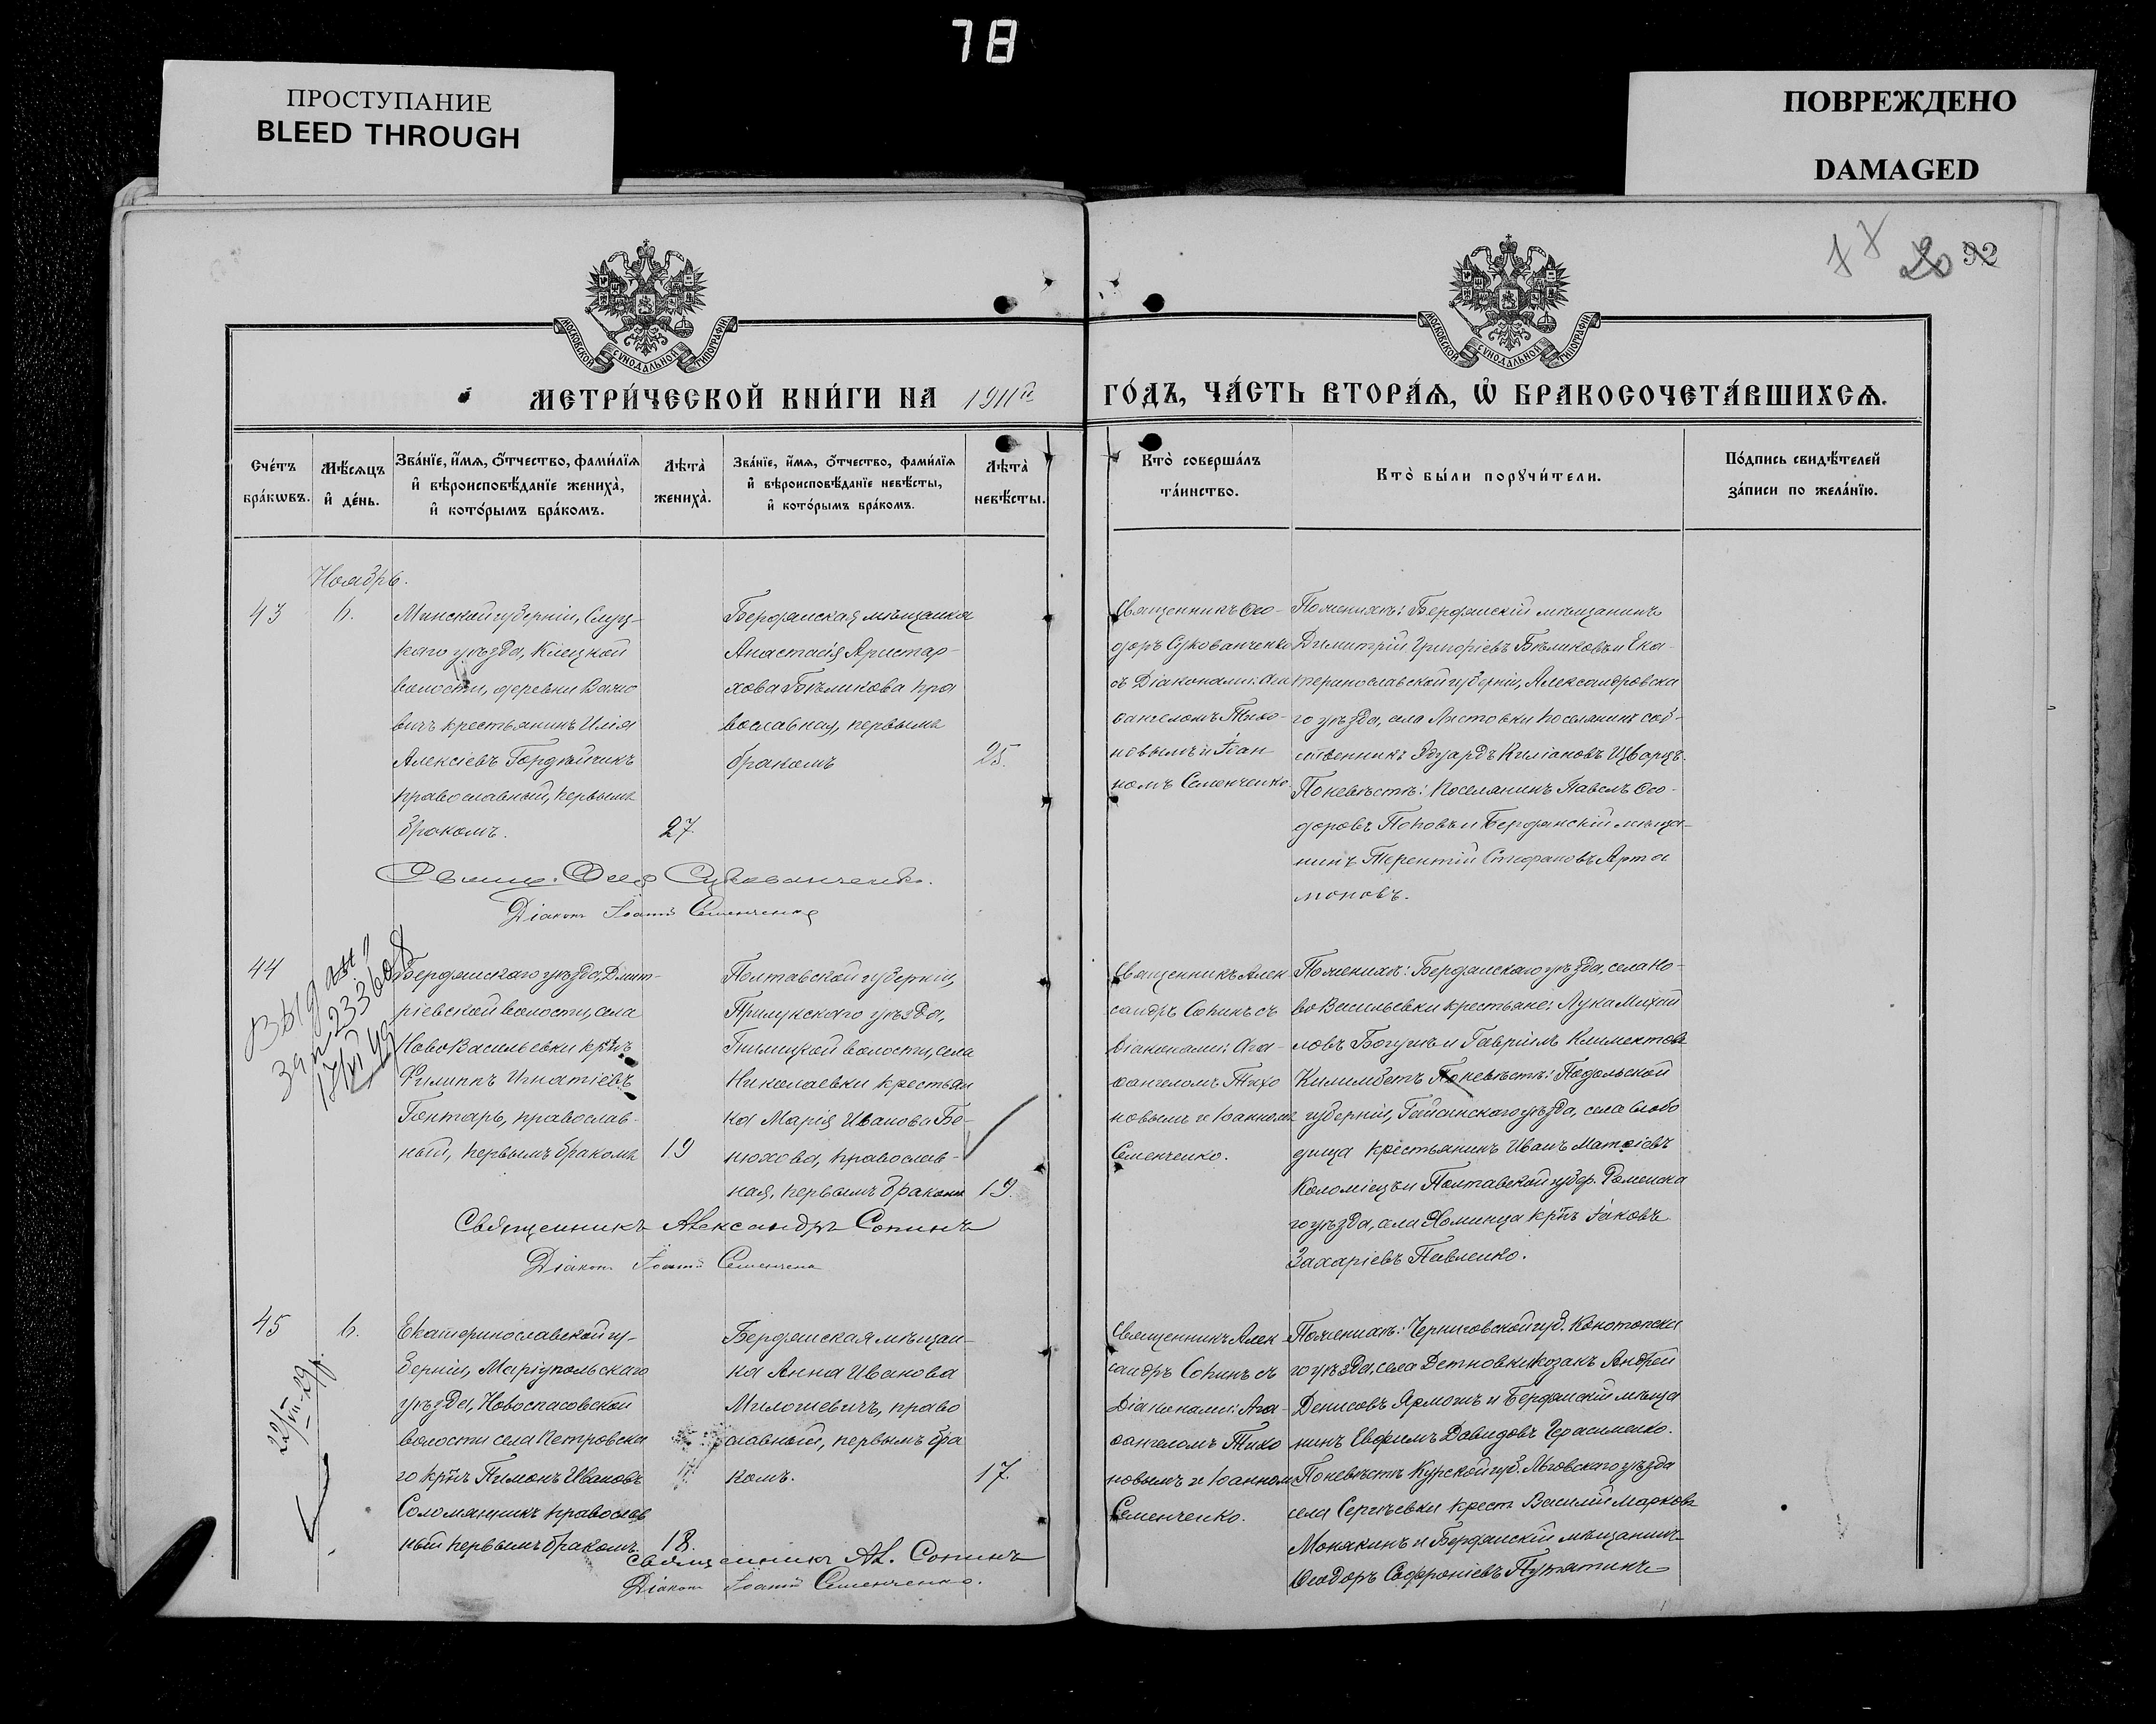 78
ПРОСТУПАНИЕ
BLEED THROUGH
ПОВРЕЖДЕНО
DAMAGED
92
МОСКОВСКОЙ СѴНОДАЛЬНОЙ ТИПОГРАФІИ
МОСКОВСКОЙ СѴНОДАЛЬНОЙ ТИПОГРАФІИ
МЕТРИ́ЧЕСКОЙ КНИ́ГИ НА 1911й ГО́ДЪ, ЧА́СТЬ ВТОРА́Ѧ, Ѽ БРАКОСОЧЕТА́ВШИХСѦ.
Сче́тъ бра́кѡвъ.
Мѣ́сѧцъ и҆ де́нь.
Зва́нїе, и҆́мѧ, ѻ҆́тчество, фами́лїѧ
и҆ вѣроисповѣ́данїе жениха̀,
и҆ кото́рымъ бра́комъ.
Лѣта̀ жениха̀.
Зва́нїе, и҆́мѧ, ѻ҆́тчество, фами́лїѧ
и҆ вѣроисповѣ́данїе невѣ́сты,
и҆ кото́рымъ бра́комъ.
Лѣта̀ невѣ́сты.
Кто̀ соверша́лъ
та́инство.
Кто̀ бы́ли порꙋчи́тели.
По́дпись свидѣ́телей
за́писи по жела́нїю.
Ноябрь.
43
6.
Минской губерніи, Слуц-
каго уѣзда, Клецкой
волости, деревни
вичъ крестьянинъ Илія
Алексіевъ Гордѣйчикъ
православный, первымъ
бракомъ.
27.
Бердянская мѣщанка
Анастасія Аристар-
хова Бѣликова пра
вославная, первымъ
бракомъ
25.
Священникъ Ѳео-
доръ Сукованченко
съ Діаконами: Ага
ѳангеломъ Тихо-
новымъ и Іоан
номъ Семенченко.
По женихѣ: Бердянскій мѣщанинъ
Димитрій Григоріевъ Бѣликовъ и Ека-
теринославской губерніи, Александровска
го уѣзда, села Листовки поселянинъ соб-
ственникъ Эдуардъ Киліановъ Шварцъ.
По невѣстѣ: Поселянинъ Павелъ Ѳео-
доровъ Поповъ и Бердянскій мѣща-
нинъ Терентій Стефановъ Арта
моновъ.
Свящ. Ѳеод Сукованченко.
Діаконъ Іоаннъ Семенченко
44
Выдан
17/VI 49
Бердянскаго уѣзда, Дмит-
ріевской волости, села
НовоВасильевки кр̃нъ
Филиппъ Игнатіевъ
Гонтарь, православ-
ный, первымъ бракомъ
19
Полтавской губерніи,
Прилукскаго уѣзда,
волости, села
Николаевки крестьян
ка Марія Иванова Бе-
нюхова, православ-
ная, первымъ бракомъ
19.
Священникъ Алек
сандръ Сопинъ съ
Діаконами: Ага-
ѳангеломъ Тихо
новымъ и Іоанномъ
Семенченко.
По женихѣ: Бердянскаго уѣзда, села Но-
во Васильевки крестьяне: Лука Михай
ловъ Богушъ и Гавріилъ Климентовъ
Килимбетъ По невѣстѣ: Подольской
губерніи, Гайсинскаго уѣзда, села Слобо
дища крестьянинъ Иванъ Матѳіевъ
Коломіецъ и Полтавской губер. Роменска
го уѣзда, села Хоминца кр̃нъ Іаковъ
Захаріевъ Павленко.
Священникъ Александръ Сопинъ
Діаконъ Іоаннъ Семенченко
45
6.
22/VII-29г.
Екатеринославской гу-
берніи, Маріупольскаго
уѣзда, Новоспасовской
волости села Петровска
го кр̃нъ Пимонъ Ивановъ
Соломящикъ православ
ный первымъ бракомъ.
18.
Бердянская мѣщан-
ка Анна Иванова
Милошевичъ, право
славный, первымъ бра
комъ.
17.
Священникъ Алек
сандръ Сопинъ съ
Діаконами: Ага-
ѳангеломъ Тихо
новымъ и Іоанномъ
Семенченко.
По женихѣ: Черниговской губ. Конотопска
го уѣзда, села казакъ Андрей
Денисовъ Ярмошъ и Бердянскій мѣща
нинъ Евфимъ Давидовъ Герасименко.
По невѣстѣ Курской губ. Льговскаго уѣзда
села Сергѣевки крест Василій Марковъ
Монякинъ и Бердянскій мѣщанинъ
Ѳеодоръ Софроніевъ Путятинъ
Священникъ Ал. Сопинъ
Діаконъ Іоаннъ Семенченко.